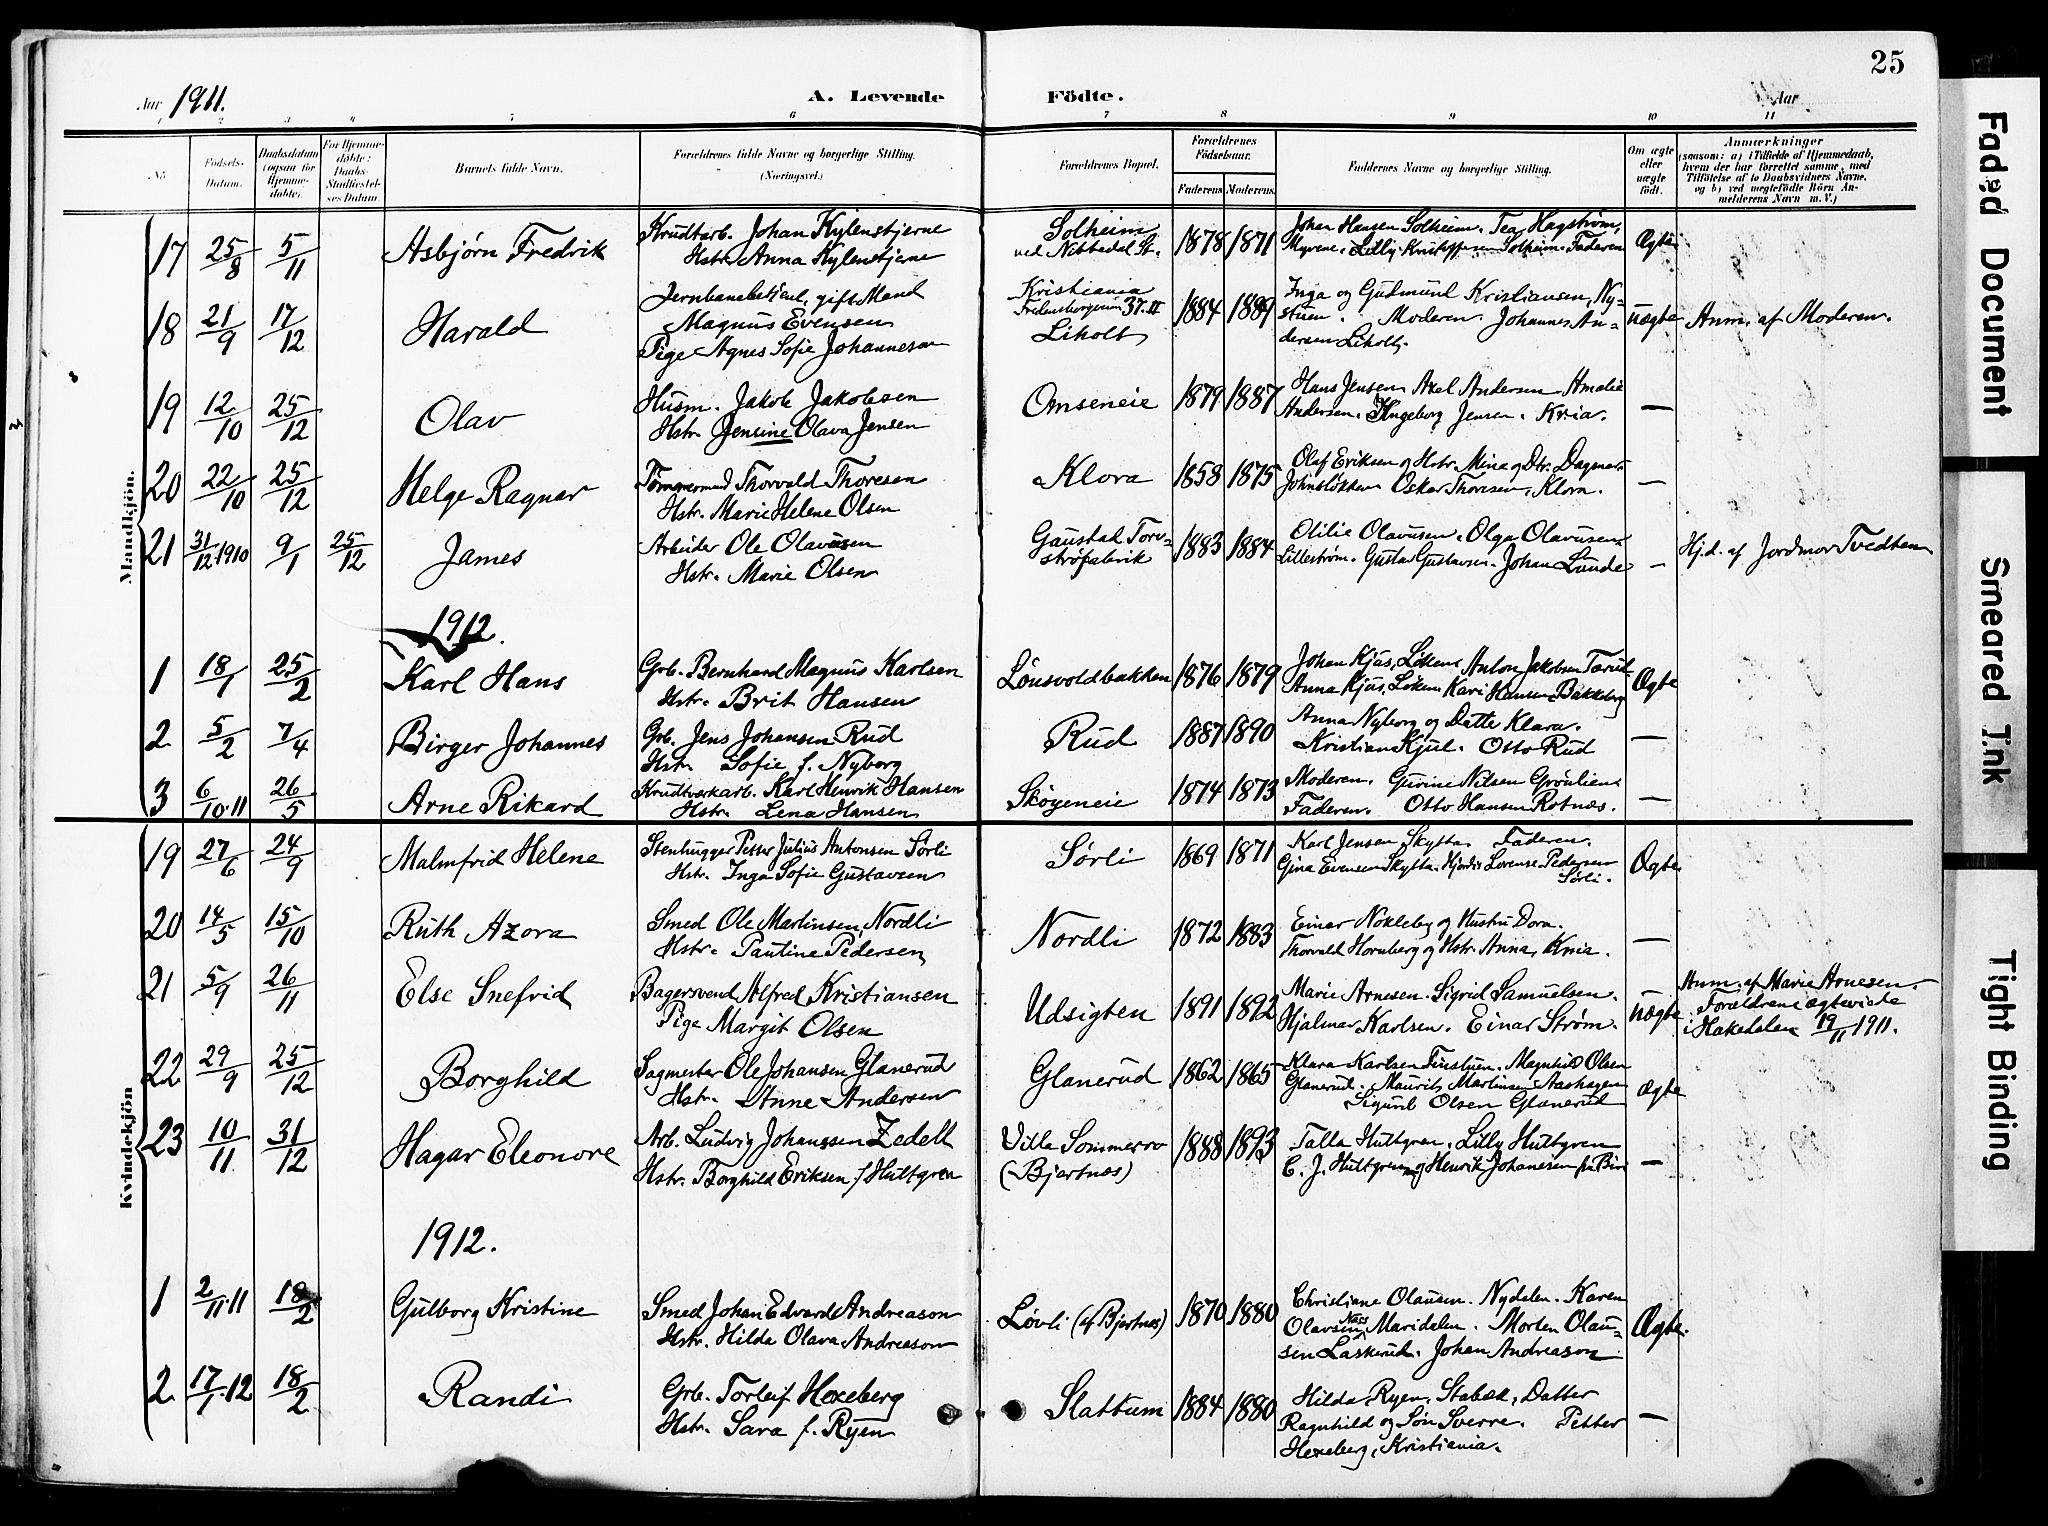 25
Aar 1911. A. Levende Födte. Aar
1 2 3 4 5 6 7 8 9 10 11
No
Födsels-Datum.
Daabsdatum (ogsaa for Hjemme-döbte).
For Hjemme-döbte: Daabs-Stadfæstel-ses Datum.
Barnets fulde Navn.
Forældrenes fulde Navne og borgerlige Stilling.
(Næringsvei.)
Forældrenes Bopæl.
Forældrenes Fødselsaar.
Faderens Moderens
Faddernes Navne og borgerlige Stilling.
Om ægte eller uægte födt.
Anmærkninger
(saasom: a) i Tilfælde af Hjemmedaab,
hvem der har forrettet samme, med
Tilföielse af to Daabsvidners Navne.
og b) ved uægtefödte Börn An-
melderens Navn m. V.)
Mandkjön.
17 25/8 5/11 Asbjørn Fredrik Krudtarb. Johan Kylenstjerne
Hstr. Anna Kylenstjerne
Solheim
ved Nittedal St.
1878 1871 Johan Hansen Solheim. Tea Hagstrøm,
Myrene. Lilly Kristoffersen Solheim. Faderen
Ægte
18 21/9 17/12 Harald Jernbanebetjent, gift Mand
Magnus Evensen
Pige Agnes Sofie Johannesen
Kristiania
Fredensborgvein 37. II
Liholt
1884 1889 Inga og Gudmund Kristiansen, Ny-
stuen. Moderen. Johannes An-
dersen Liholt.
uægte Anm. af Moderen.
19 12/10 25/12 Olav Husm. Jakob Jakobsen
Hstr. Jensine Olava Jensen
Onseneie 1879 1887 Hans Jensen Axel Andersen Amalie
Andersen. Ingeborg Jensen. Kria. —
20 22/10 25/12 Helge Ragnar Tømmermand Thorvald Thoresen
Hstr. Marie Helene Olsen
Klora 1858 1875 Olaf Eriksen og Hstr. Mina og Dtr. Dagmar
Johnsløkken Oskar Thoresen, Klora. —
21 31/12 1910 9/1 25/12 James Arbeider Ole Olavesen
Hstr. Marie Olsen
Gaustad Torv-
strøfabrik
1883 1884 Otilie Olavesen. Olga Olavesen
Lillestrøm. Gustav Gustavsen. Johan Lunde —
Hj.d. af Jordmor Tvedten
1912.
1 18/1 25/2 Karl Hans Grb. Bernhard Magnus Karlsen
Hstr. Brit Hansen
Lønsvoldbakken 1876 1879 Johan Kjus, Løken Anton Jakobsen Tærud
Anna Kjus, Løken Kari Hansen Bakkeberg
Ægte
2 5/2 7/4 Birger Johannes Grb. Jens Johansen Rud
Hstr. Sofie f. Nyborg
Rud 1887 1890 Anna Nyborg og Datte Klara.
Kristian Kjul. Otto Rud —
3 6/10.11 26/5 Arne Rikard Krudtværkarb. Karl Henrik Hansen
Hstr. Lena Hansen
Skøyeneie 1874 1873 Moderen. Gurine Nilsen Grønlien
Faderen. Otto Hansen Rotnæs. —
Kvindekjön
19 27/6 24/9 Malmfrid Helene Stenhugger Petter Julius Antonsen Sørli
Hstr. Inga Sofie Gustavsen
Sørli 1869 1871 Karl Jensen Skytta. Faderen.
Gina Evensen Skytta. Hjørdis Lorense Pedersen
Sørli.
Ægte
20 14/5 15/10 Ruth Azora Smed Ole Martinsen, Nordli
Hstr. Pauline Pedersen
Nordli 1872 1883 Einar Nokleby og Hustru Dora.
Thorvald Hornberg og Hstr. Anna, Kria. —
21 5/9 26/11 Else Snefrid Bagersvend Alfred Kristiansen
Pige Margit Olsen
Udsigten 1891 1892 Marie Arnesen. Sigrid Samuelsen.
Hjalmar Karlsen. Einar Strøm.
uægte Anm. af Marie Arnesen.
Forældrene ægteviede
i Hakedalen 19/11 1911.
22 29/9 25/12 Borghild Sagmester Ole Johansen Glanerud
Hstr. Anne Andersen
Glanerud 1862 1865 Klara Karlsen Tinstuen. Magnhild Olsen
Glanerud. Maurits Martinsen Aashagen
Sigurd Olsen Glanerud
Ægte
23 10/11 31/12 Hagar Eleonore Arb. Ludvig Johanssen Zedell
Hstr. Borghild Eriksen f. Hultgren
Villa Sommerro
(Bjertnæs)
1888 1893 Talla Hultgren. Lilly Hultgren
C. J. Hultgren og Henrik Johanesen —
1912.
1 2/11.11 18/2 Gulborg Kristine Smed Johan Edvard Andreason
Hstr. Hilda Olava Andreason
Løvli (af Bjertnæs) 1870 1880 Christiane Olausen. Nydalen. Karen
Olavsen Næss Maridalen. Morten Olau-
sen Laskerud. Johan Andreason
Ægte.
2 17/1.12 18/2 Randi Grb. Torleif Hexeberg
Hstr. Sara f. Ryen
Slattum 1884 1880 Hilda Ryen, Stabæk, Datter
Ragnhild og Søn Sverre. Petter
Hexeberg, Kristiania. —
Faded Document
Smeared Ink
Tight Binding